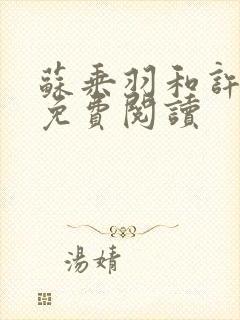 蘇乘羽和許
免費閱讀
湯婧